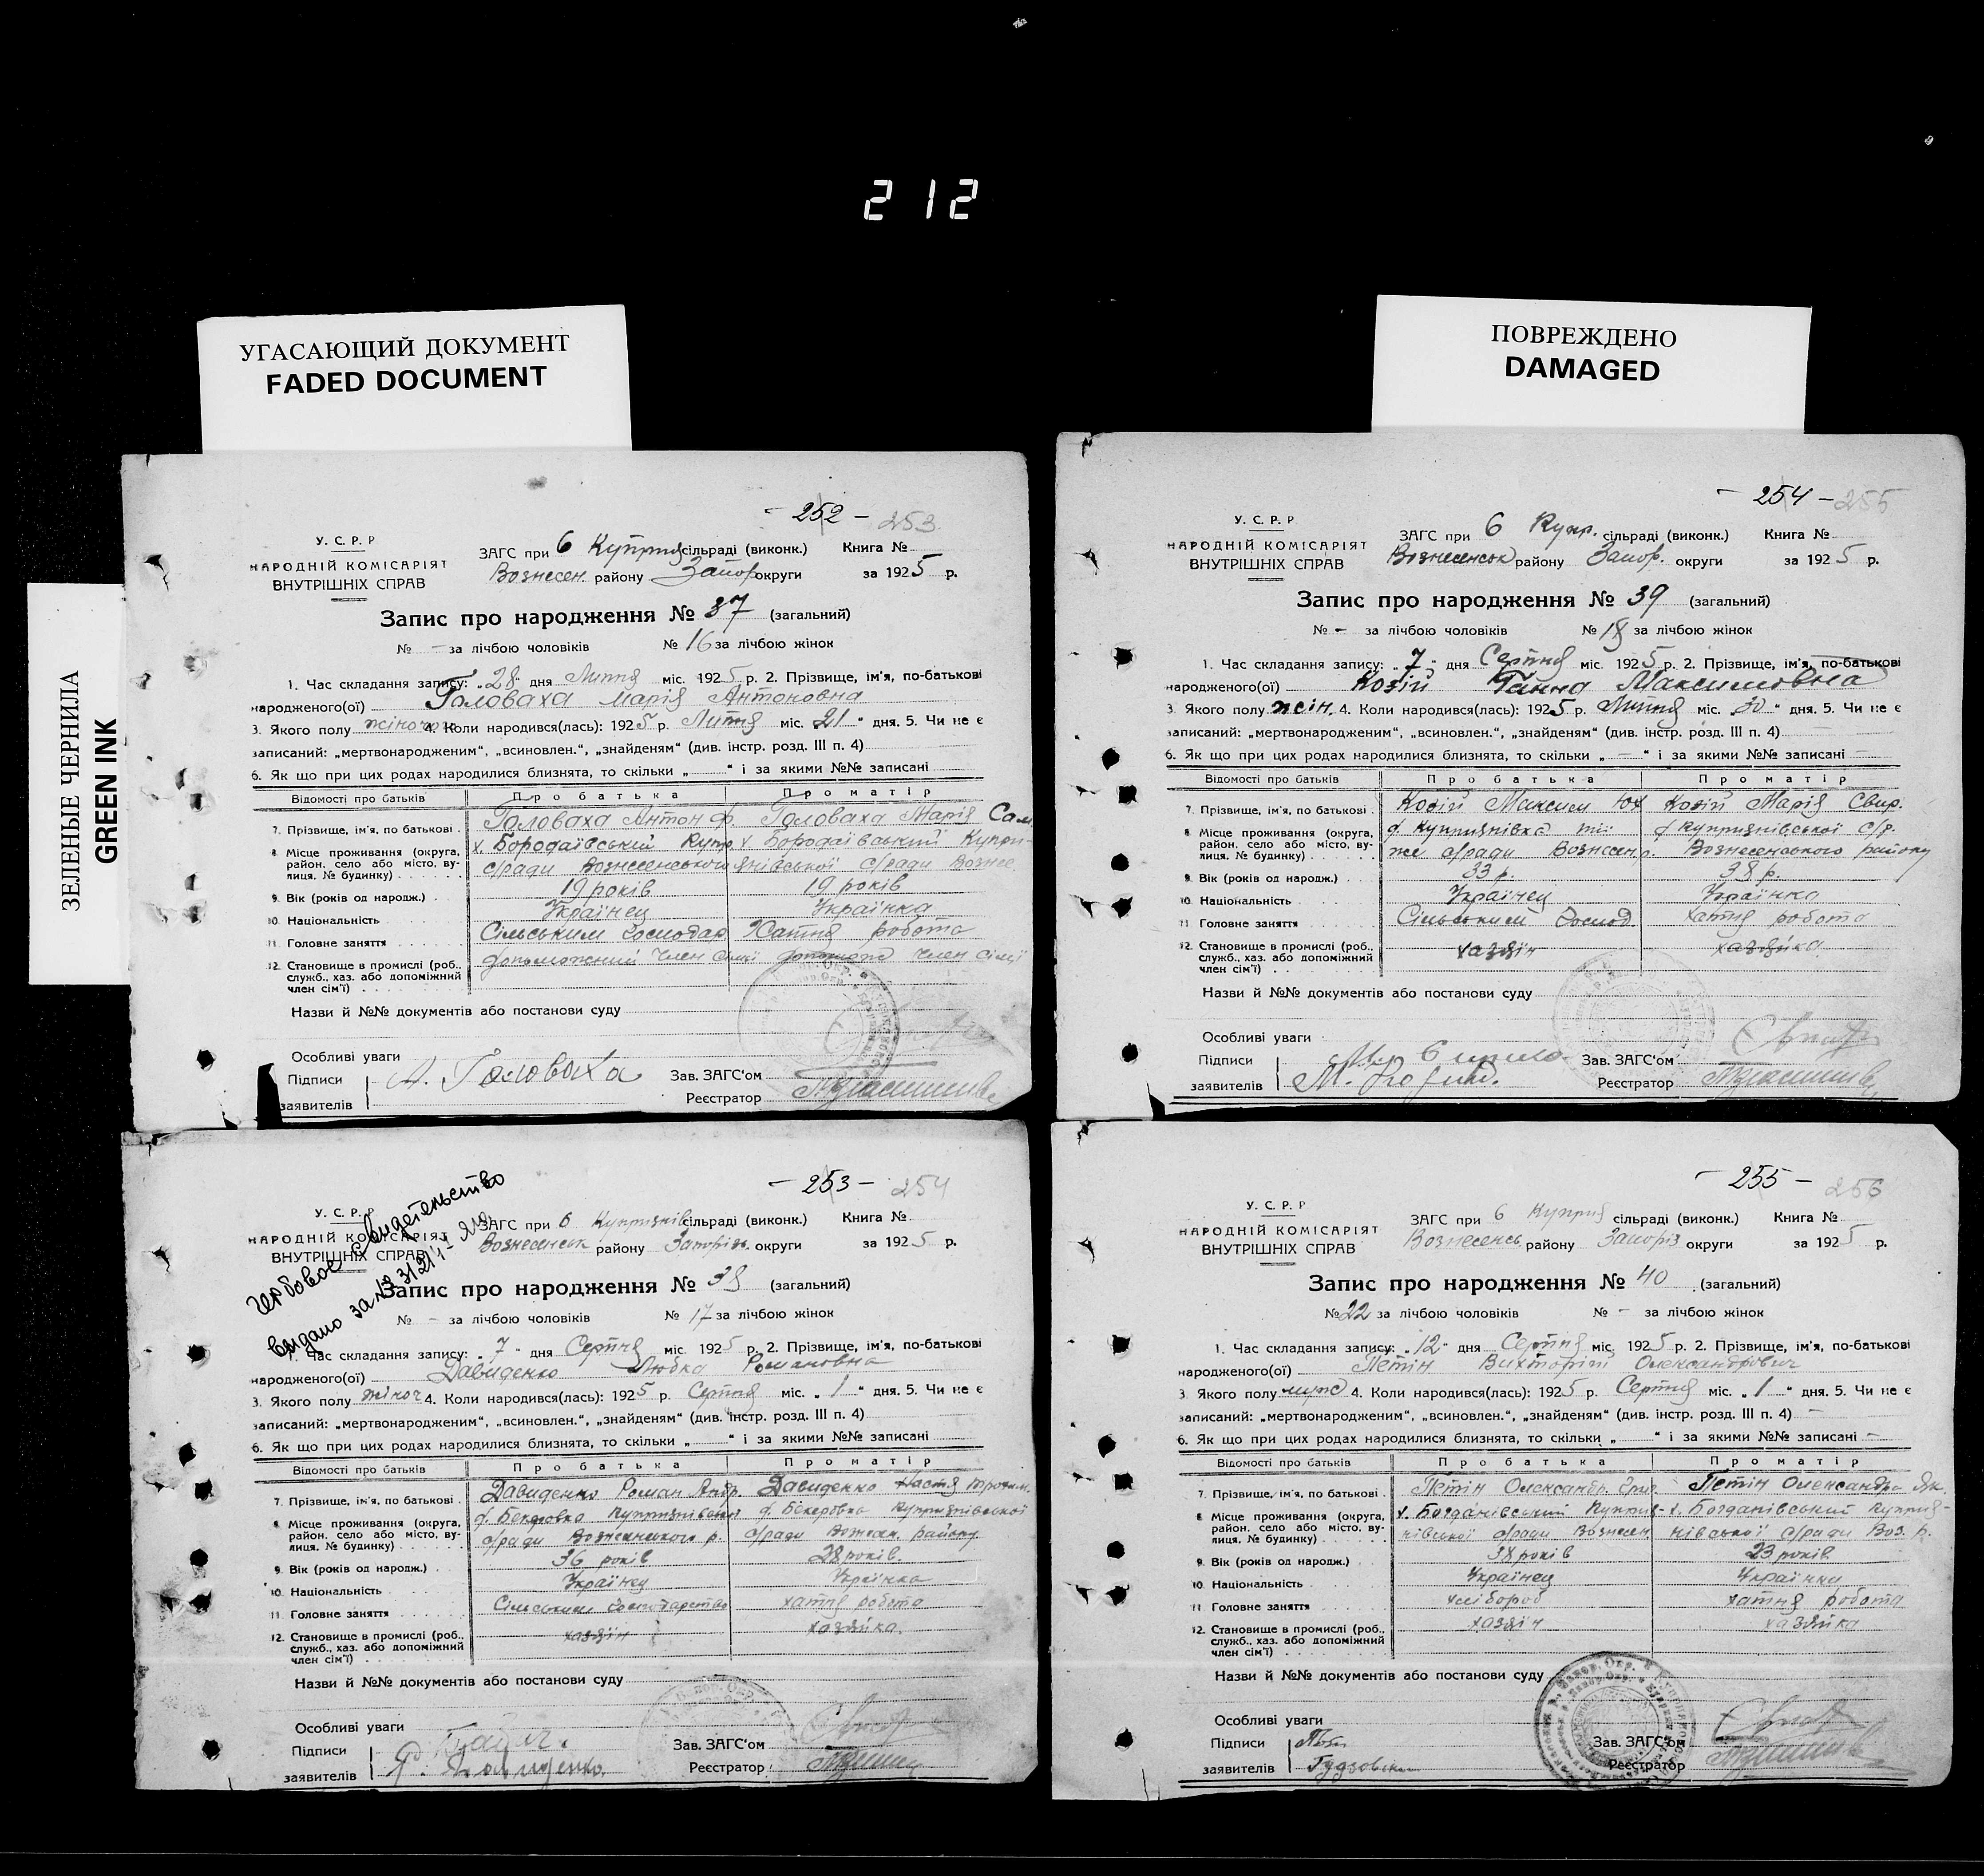 212
УГАСАЮЩИЙ ДОКУМЕНТ
FADED DOCUMENT
ПОВРЕЖДЕНО
DAMAGED
ЗЕЛЕНЫЕ ЧЕРНИЛА
GREEN INK
- 252 - 253
У. С. Р. Р
НАРОДНІЙ КОМІСАРІЯТ
ВНУТРІШНІХ СПРАВ
ЗАГС при 6 Куприя сільраді (виконк.) Книга №
Вознесен. району Запор округи за 1925 р.
Запис про народження № 37 (загальний)
№ - за лічбою чоловіків № 16 за лічбою жінок
1. Час складання запису: „28" дня Липня міс. 1925 р. 2. Прізвище, ім'я, по-батькові
народженого(ої) Головаха Марія Антоновна
3. Якого полу жіноч 4. Коли народився(лась): 1925 р. Липня міс. 21 " дня. 5. Чи не є
записаний: „мертвонародженим", „всиновлен.", „знайденям" (див. інстр. розд. III п. 4)
6. Як що при цих родах народилися близнята, то скільки „ " і за якими №№ записані
Відомості про батьків Про батька Про матір
7. Прізвище, ім'я, по батькові . Головаха Антон Ф. Головаха Марія Сам
8. Місце проживання (округа, район, село або місто, вулиця, № будинку) х. Бородаївський Купр. х. Бородаївський Купри-
с/ради Вознесенського янівської с/ради Вознесе
9. Вік (років од народж.) . 19 років 19 років
10. Національність Українец Українка
11. Головне заняття Сільським господар Хатня робота
12. Становище в промислі (роб., служб., хаз. або допоміжний член сім'ї) допоможний член сімї допоможн член сімї
Назви й №№ документів або постанови суду
Особливі уваги
Підписи А. Головаха Зав. ЗАГС'ом
заявителів Реєстратор
- 254 - 255
У. С. Р. Р
НАРОДНІЙ КОМІСАРІЯТ
ВНУТРІШНІХ СПРАВ
ЗАГС при 6 Купр. сільраді (виконк.) Книга №
Вознесенськ району Запор. округи за 1925 р.
Запис про народження № 39 (загальний)
№ - за лічбою чоловіків № 18 за лічбою жінок
1. Час складання запису: „7" дня Серпня міс. 1925 р. 2. Прізвище, ім'я, по-батькові
народженого(ої) Козій Ганна Максимовна
3. Якого полу жін. 4. Коли народився(лась): 1925 р. Липня міс. 30 " дня. 5. Чи не є
записаний: „мертвонародженим", „всиновлен.", „знайденям" (див. інстр. розд. III п. 4)
6. Як що при цих родах народилися близнята, то скільки „ — " і за якими №№ записані —
Відомості про батьків Про батька Про матір
7. Прізвище, ім'я, по батькові . Козій Максим Юх Козій Марія Свир.
8. Місце проживання (округа, район, село або місто, вулиця, № будинку) д Куприянівка д Куприянівської с/р.
же с/ради Вознесен. р. Вознесенського району
9. Вік (років од народж.) . 33 р. 38 р.
10. Національність Українец Українка
11. Головне заняття Сільським господ хатня робота
12. Становище в промислі (роб., служб., хаз. або допоміжний член сім'ї) хазяїн хазяйка
Назви й №№ документів або постанови суду
Особливі уваги
Підписи Зав. ЗАГС'ом
заявителів Реєстратор
- 253 - 254
Гербовое свидетельство
Видано за №
У. С. Р. Р
НАРОДНІЙ КОМІСАРІЯТ
ВНУТРІШНІХ СПРАВ
ЗАГС при 6 Куприянів сільраді (виконк.) Книга №
Вознесенськ району Запоріз. округи за 1925 р.
Запис про народження № 38 (загальний)
№ - за лічбою чоловіків № 17 за лічбою жінок
1. Час складання запису: „7" дня Серпня міс. 1925 р. 2. Прізвище, ім'я, по-батькові
народженого(ої) Давиденко Любка Романовна
3. Якого полу жіноч 4. Коли народився(лась): 1925 р. Серпня міс. „ 1 " дня. 5. Чи не є
записаний: „мертвонародженим", „всиновлен.", „знайденям" (див. інстр. розд. III п. 4)
6. Як що при цих родах народилися близнята, то скільки „ " і за якими №№ записані
Відомості про батьків Про батька Про матір
7. Прізвище, ім'я, по батькові . Давиденко Роман Андр. Давиденко Настя Трохим.
8. Місце проживання (округа, район, село або місто, вулиця, № будинку) д. Бекеровка Куприянівської д. Бекеровка Куприянівської
с/ради Вознесенського р. с/ради Вознесен. району
9. Вік (років од народж.) . 36 років 28 років.
10. Національність Українец Українка
11. Головне заняття Сільським господарство хатня робота
12. Становище в промислі (роб., служб., хаз. або допоміжний член сім'ї) хазяїн хазяйка.
Назви й №№ документів або постанови суду
Особливі уваги
Підписи Зав. ЗАГС'ом
заявителів Давиденко Реєстратор
- 255 - 256
У. С. Р. Р
НАРОДНІЙ КОМІСАРІЯТ
ВНУТРІШНІХ СПРАВ
ЗАГС при 6 Куприя сільраді (виконк.) Книга №
Вознесенсь району Запоріз округи за 1925 р.
Запис про народження № 40 (загальний)
№ 22 за лічбою чоловіків № - за лічбою жінок
1. Час складання запису: „12" дня Серпня міс. 1925 р. 2. Прізвище, ім'я, по-батькові
народженого(ої) Петін Вихторій Олександрович
3. Якого полу муж 4. Коли народився(лась): 1925 р. Серпня міс. „ 1 " дня. 5. Чи не є
записаний: „мертвонародженим", „всиновлен.", „знайденям" (див. інстр. розд. III п. 4) —
6. Як що при цих родах народилися близнята, то скільки „ " і за якими №№ записані —
Відомості про батьків Про батька Про матір
7. Прізвище, ім'я, по батькові . Петін Олександр Петін Олександра Як.
8. Місце проживання (округа, район, село або місто, вулиця, № будинку) х. Богданівський Куприя- х. Богданівський Куприя-
нівської с/ради Вознесен нівської с/ради Воз. р.
9. Вік (років од народж.) . 38 років 23 років
10. Національність Українец Українка
11. Головне заняття хлібороб хатня робота
12. Становище в промислі (роб., служб., хаз. або допоміжний член сім'ї) хазяїн хазяйка
Назви й №№ документів або постанови суду
Особливі уваги
Підписи Зав. ЗАГС'ом
заявителів Реєстратор